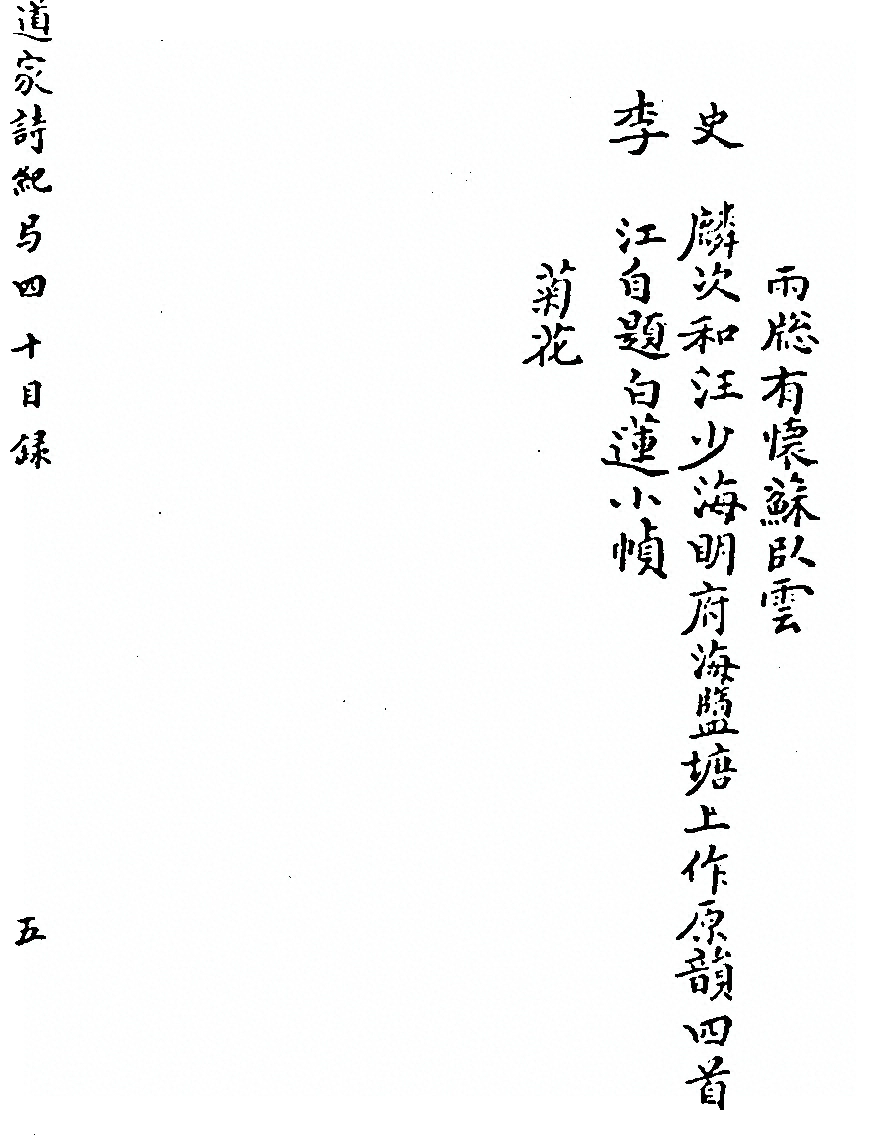 雨牕有懷蘇臥雲
史　麟次和汪少海明府海鹽塘上作原韻四首
李　江自題白蓮小幀
菊花
道家詩紀弓四十目録
五